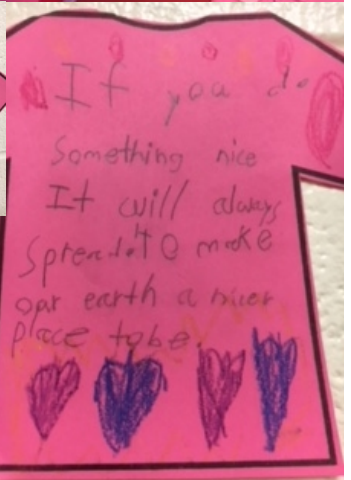 If you do
Something nice
It will always
Spread to make
our earth a nicer
place to be.